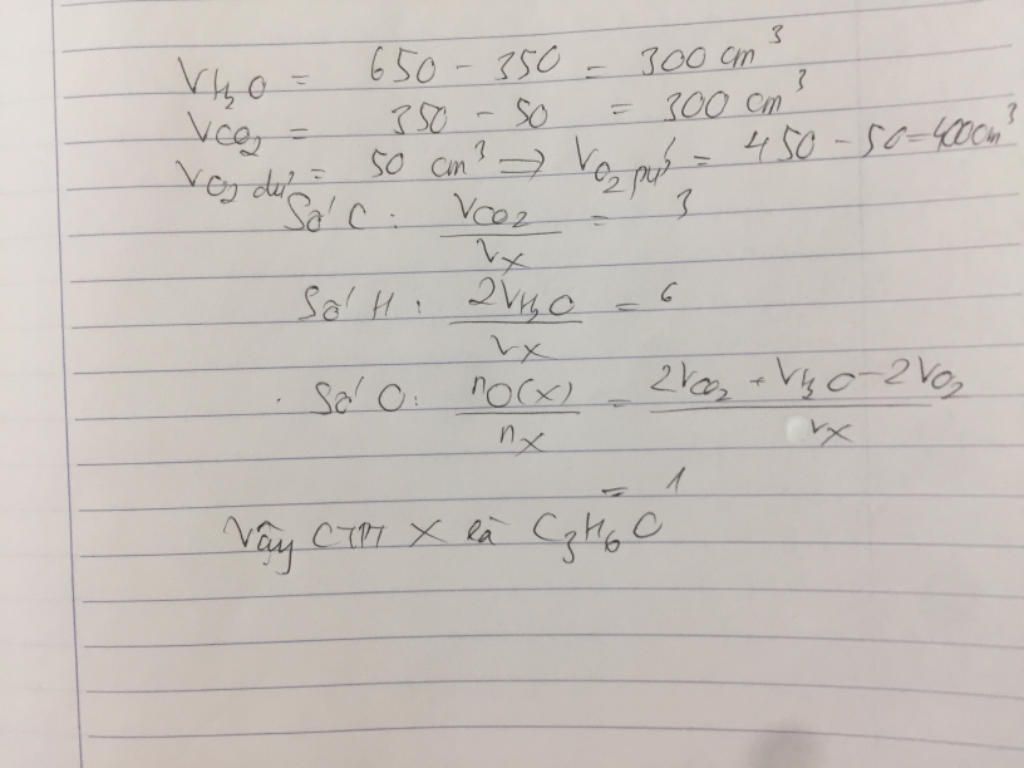 VH₂O = 650 - 350 = 300 cm³
VCO₂ = 350 - 50 = 300 cm³
VO₂ dư = 50 cm³ ⇒ VO₂ pứ = 450 - 50 = 400cm³
Số C : VCO₂ / VX = 3
Số H : 2VH₂O / VX = 6
Số O : nO(X) / nX = 2VCO₂ + VH₂O - 2VO₂ / VX
= 1
Vậy CTPT X là C₃H₆O